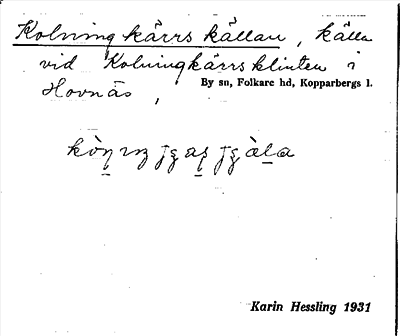 Kolningkärrskällan, källa
vid Kolningkärrsklinten i
Hovnäs,
By sn, Folkare hd, Kopparbergs l.
Karin Hessling 1931